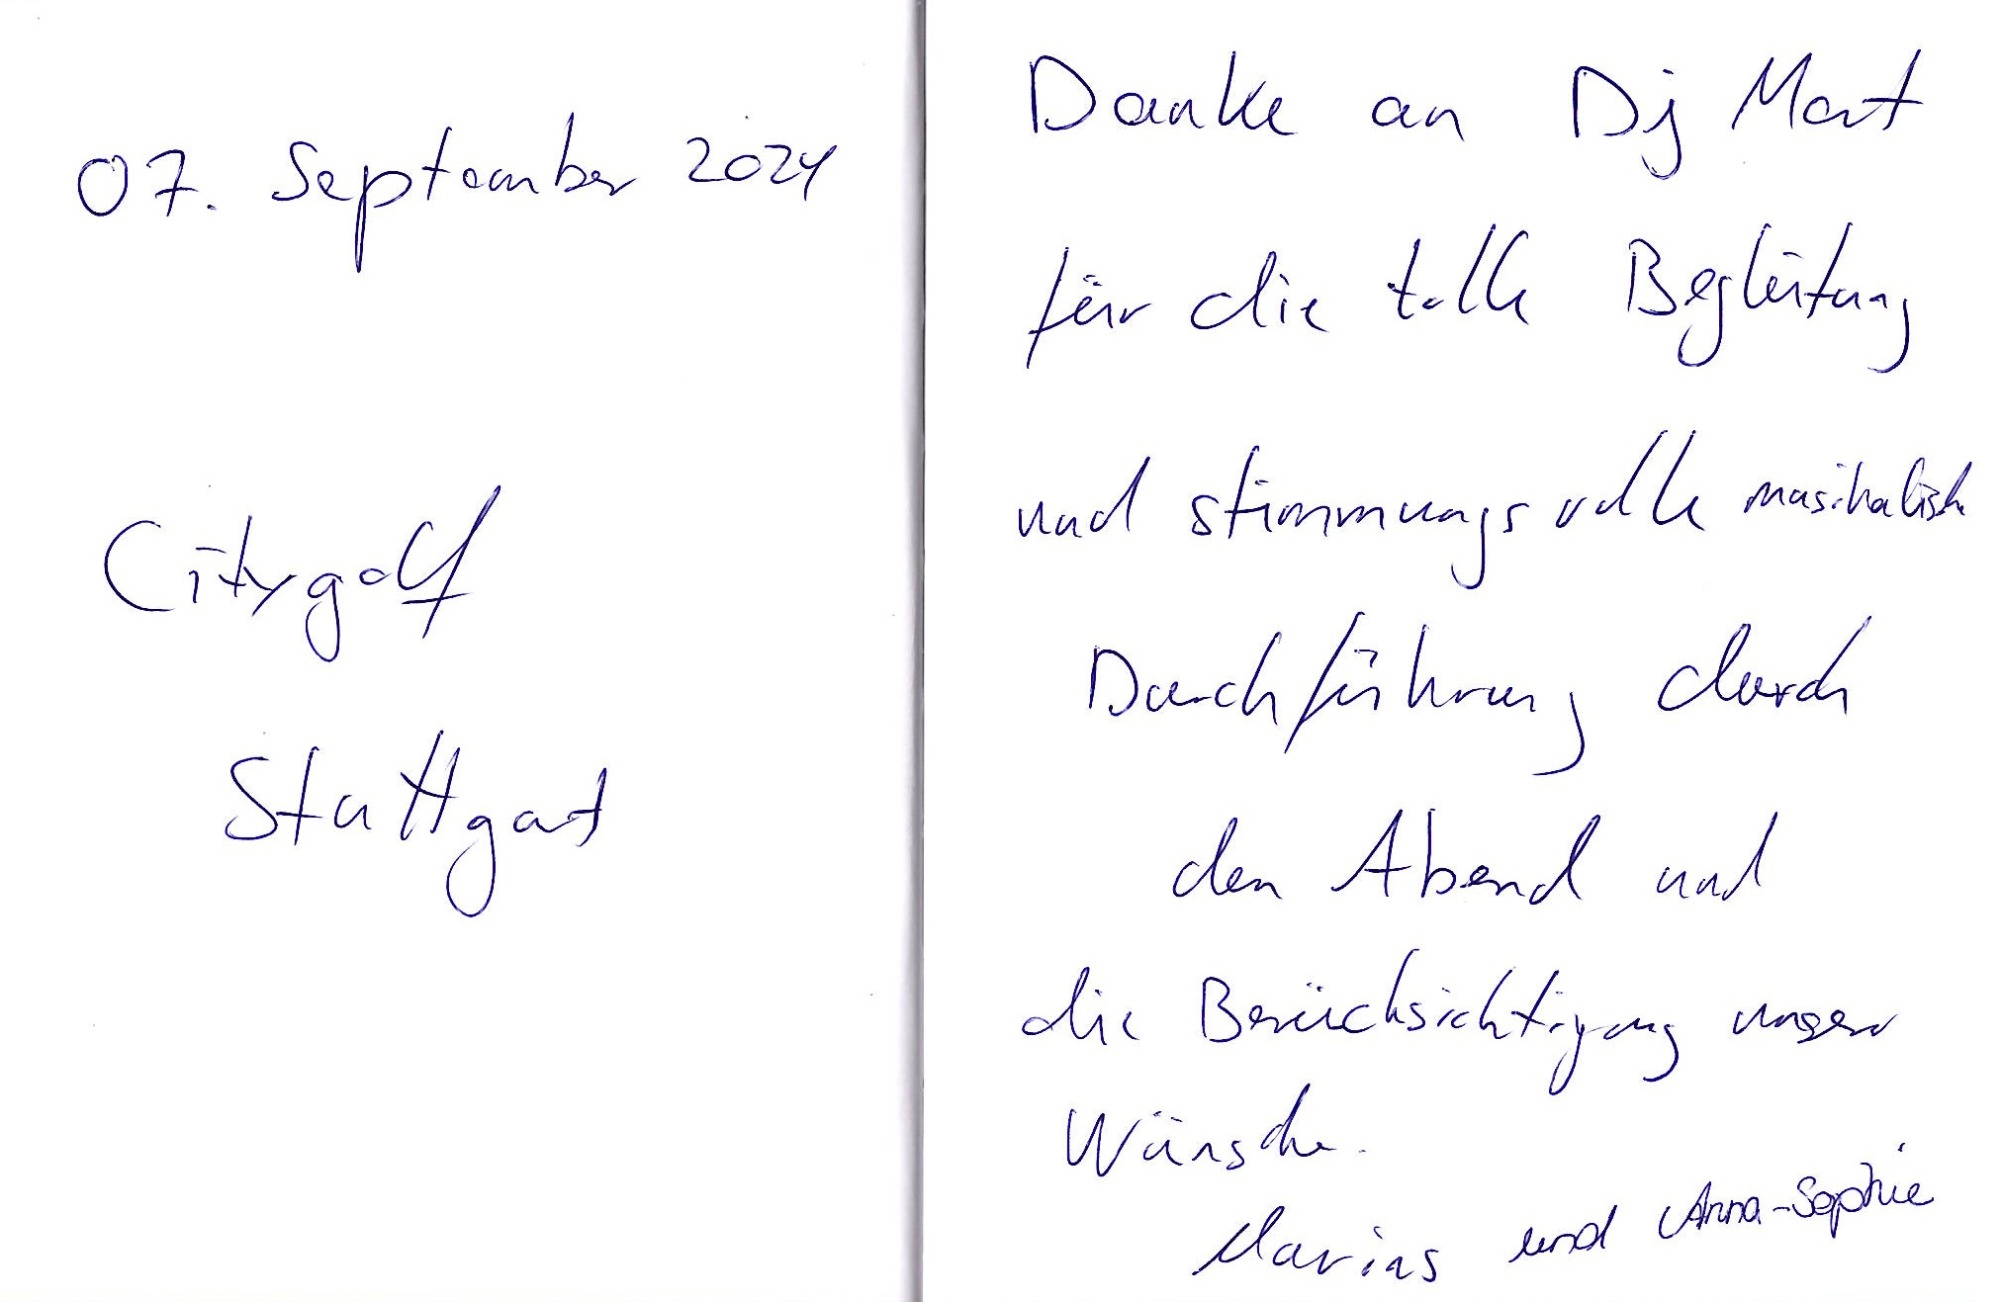 07. September 2024
Citygolf
Stuttgart
Danke an Dj Mart
für die tolle Begleitung
und stimmungsvolle musikalisch
Durchführung durch
den Abend und
die Berücksichtigung unserer
Wünsche.
Marius und Anna-Sophie